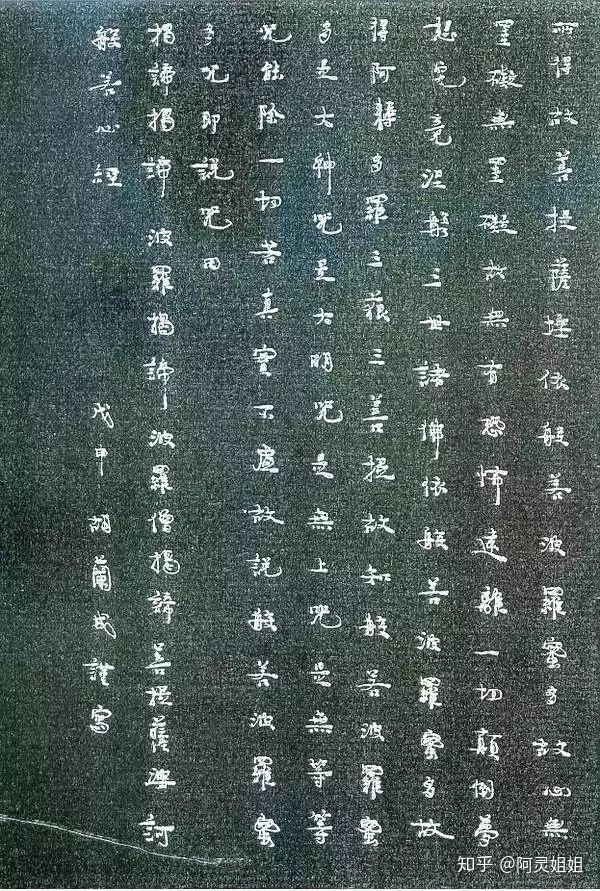 所得故菩提薩埵依般若波羅蜜多故心無
罣礙無罣礙故無有恐怖遠離一切顛倒夢
想究竟涅槃三世諸佛依般若波羅蜜多故
得阿耨多羅三藐三菩提故知般若波羅蜜
多是大神咒是大明咒是無上咒是無等等
咒能除一切苦真實不虛故說般若波羅蜜
多咒即說咒曰
揭諦揭諦波羅揭諦波羅僧揭諦菩提薩婆訶
般若心經 戊申胡蘭成謹寫
知乎 @阿灵姐姐